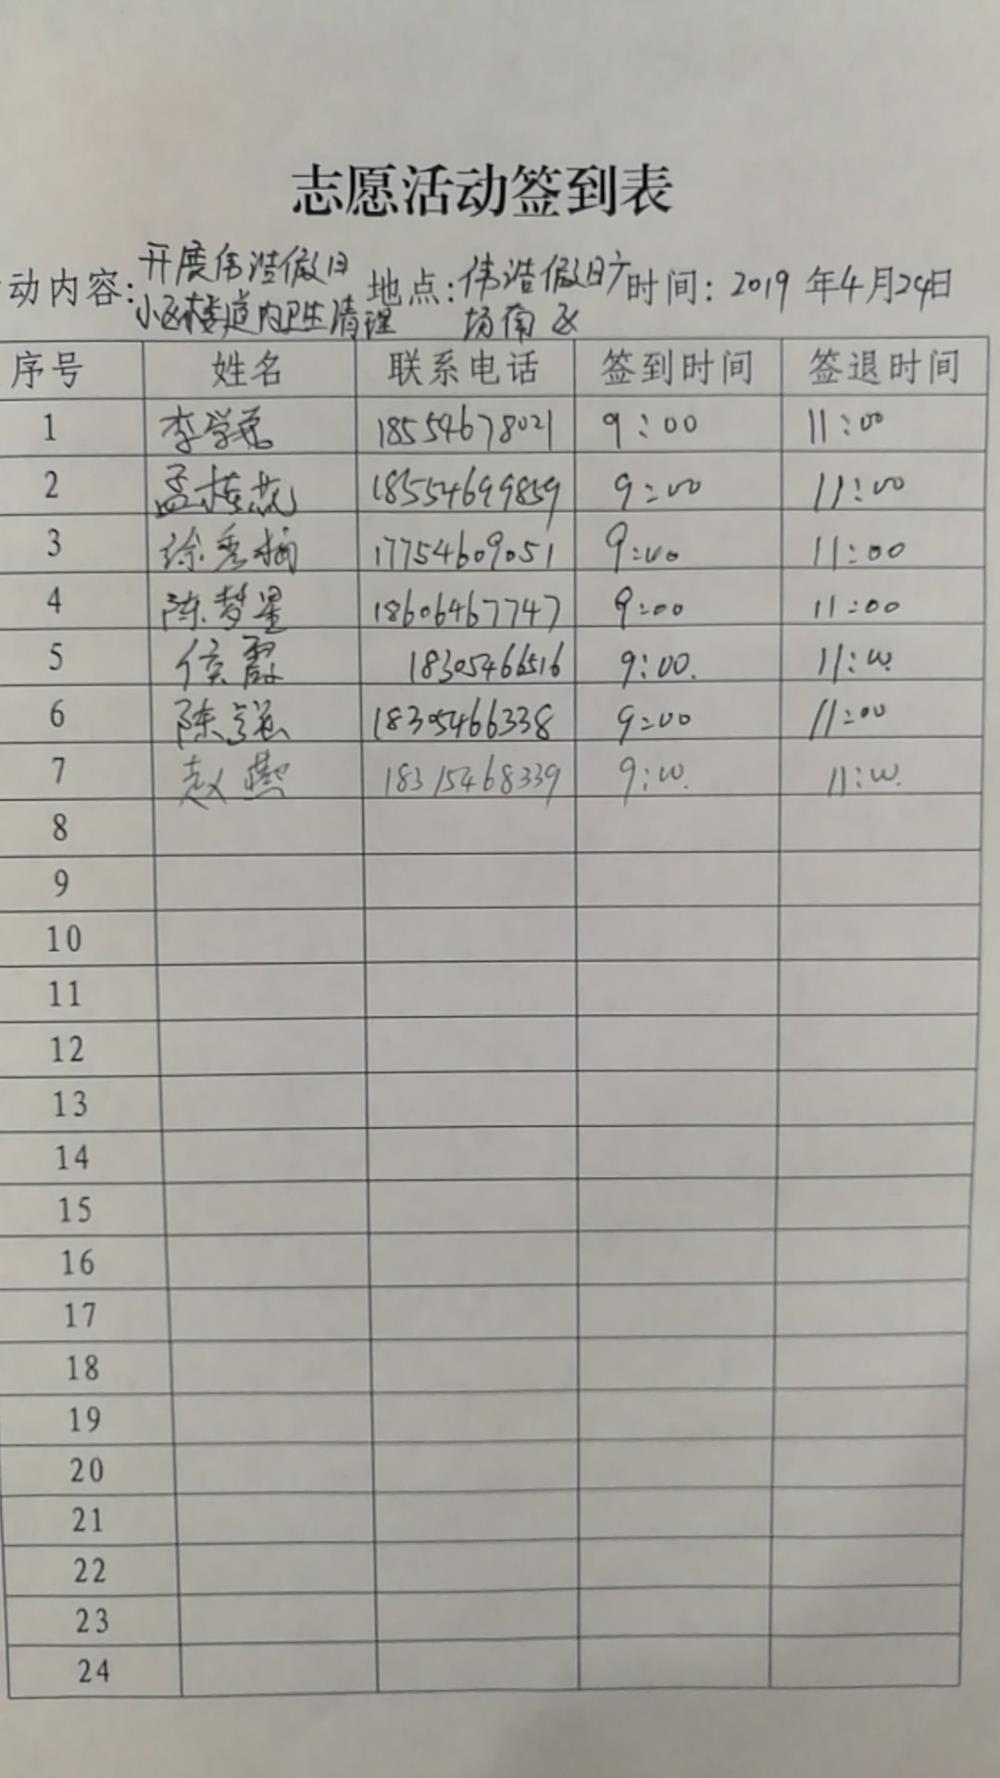 志愿活动签到表
动内容: 开展伟浩假日 小区楼道内卫生清理 地点: 伟浩假日广场南区 时间: 2019年4月24日
序号 姓名 联系电话 签到时间 签退时间
1 李学 18554678021 9:00 11:00
2 孟桂花 18554699859 9:00 11:00
3 徐秀梅 17754609051 9:00 11:00
4 陈梦星 18606467747 9:00 11:00
5 侯霞 18305466516 9:00. 11:00.
6 陈强 18305466338 9:00 11:00
7 赵燕 18315468339 9:00. 11:00.
8
9
10
11
12
13
14
15
16
17
18
19
20
21
22
23
24